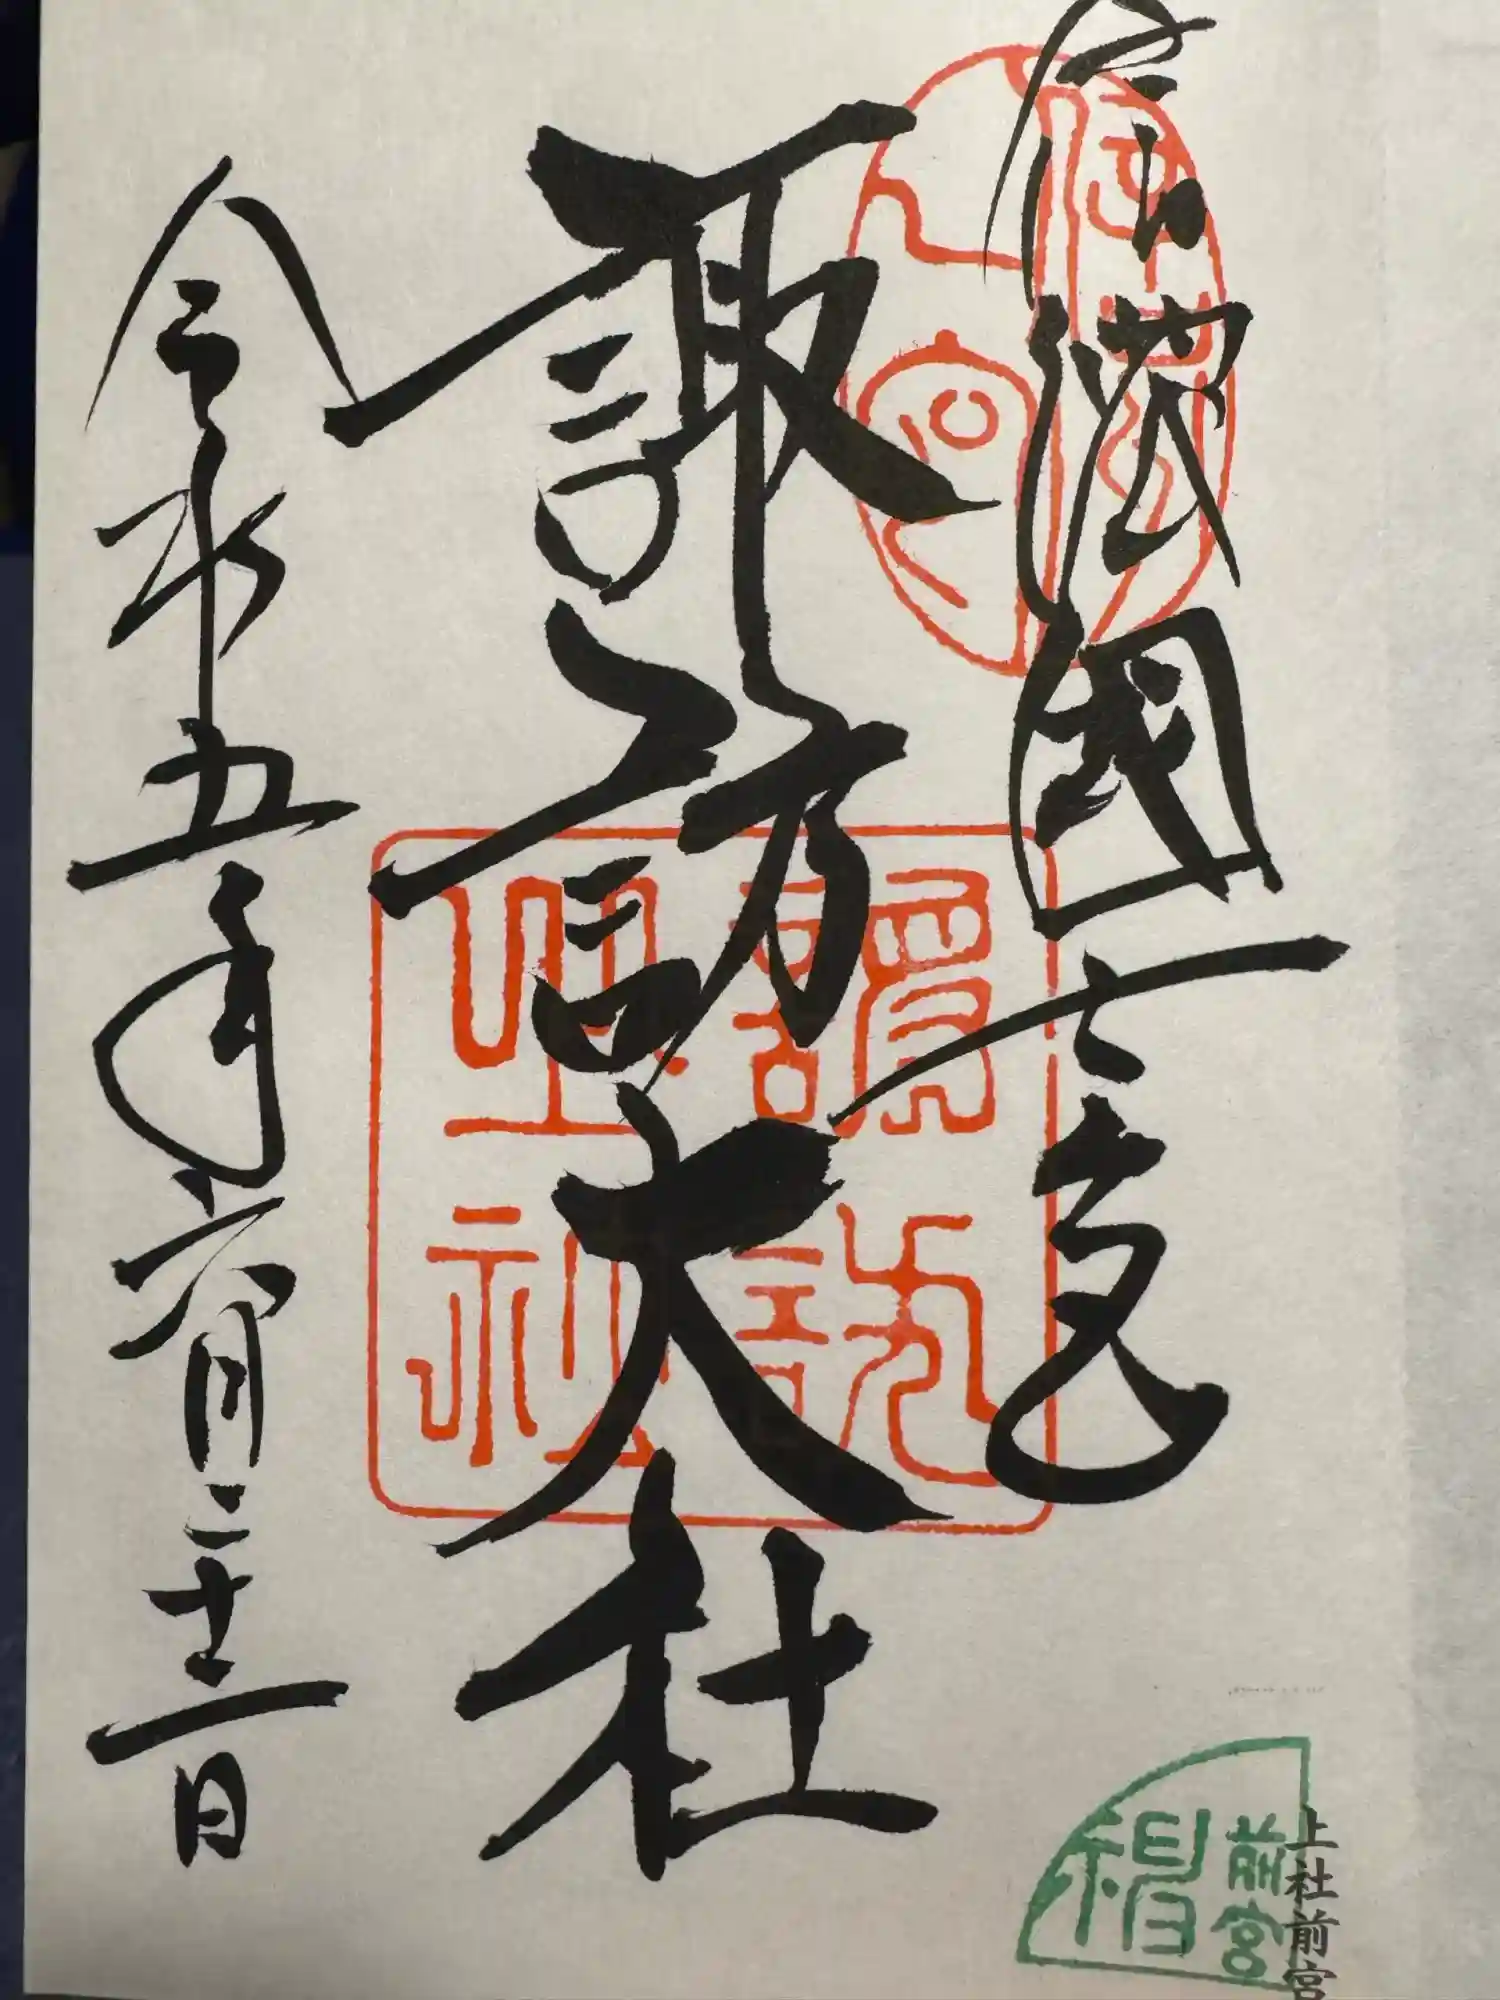 信濃國一之宮
諏訪大社
令和五年六月二十二日
諏訪
之社
前宮
上社前宮